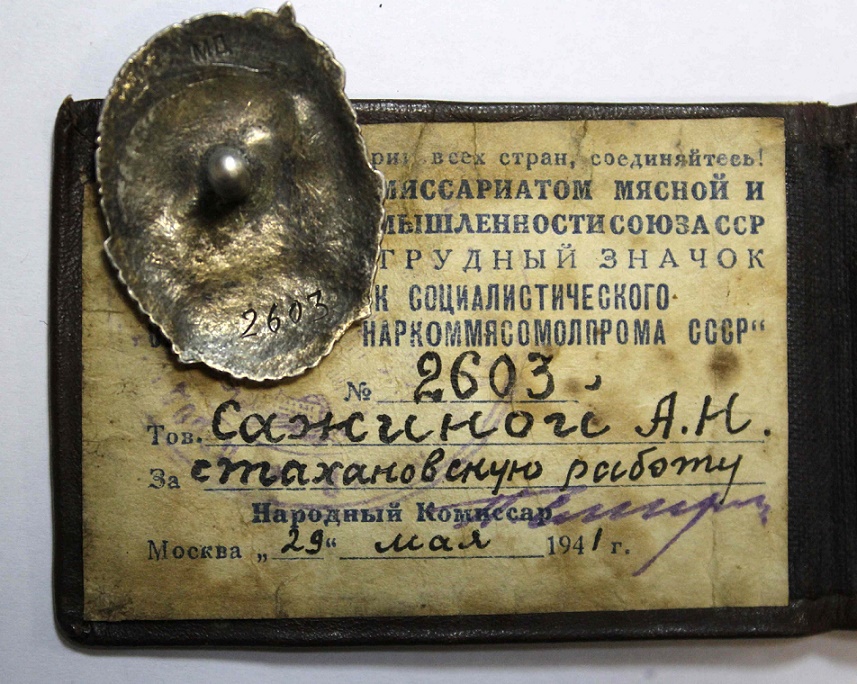 МД
2603
всех стран, соединяйтесь!
МИССАРИАТОМ МЯСНОЙ И
МЫШЛЕННОСТИ СОЮЗА ССР
ТРУДНЫЙ ЗНАЧОК
К СОЦИАЛИСТИЧЕСКОГО
НАРКОММЯСОМОЛПРОМА СССР“
№ 2603
Тов. Сажиной А.Н.
За стахановскую работу
Народный Комиссар
Москва „29“ мая 1941 г.